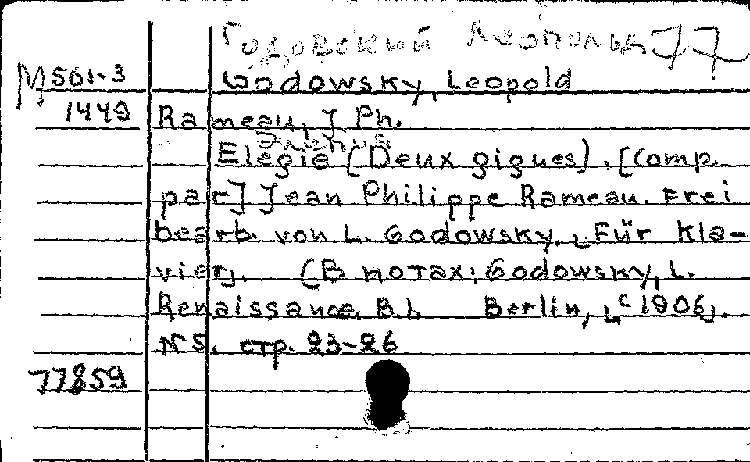 Годовский Леопольд 77
М 501-3 Godowsky, Leopold
1449 Rameau, J Ph.
Элегия
Elegie (Deux gigues). [Comp.
par] Jean Philippe Rameau. Frei
bearb. von L. Godowsky. [Für Kla-
vier]. (В нотах: Godowsky, L.
Renaissance. B.I. Berlin, [c 1906].
N 5. стр. 23-26
77859